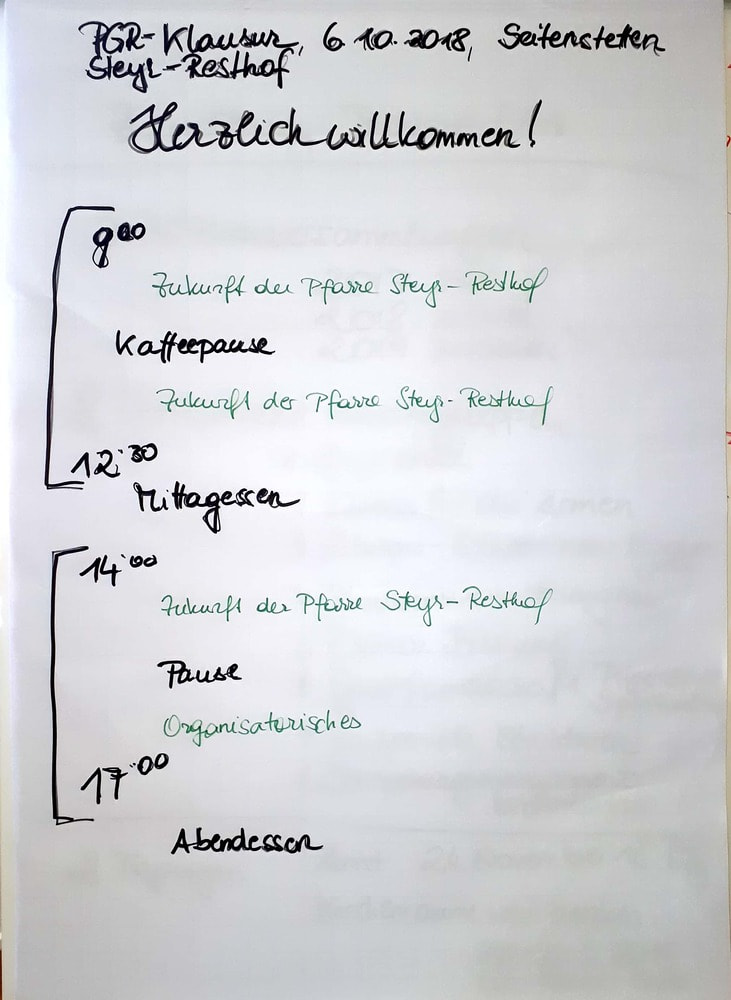 PGR-Klausur, 6.10.2018, Seitenstetten
Steyr-Resthof
Herzlich willkommen!
9:00
Zukunft der Pfarre Steyr-Resthof
Kaffeepause
Zukunft der Pfarre Steyr-Resthof
12:30
Mittagessen
14:00
Zukunft der Pfarre Steyr-Resthof
Pause
Organisatorisches
17:00
Abendessen